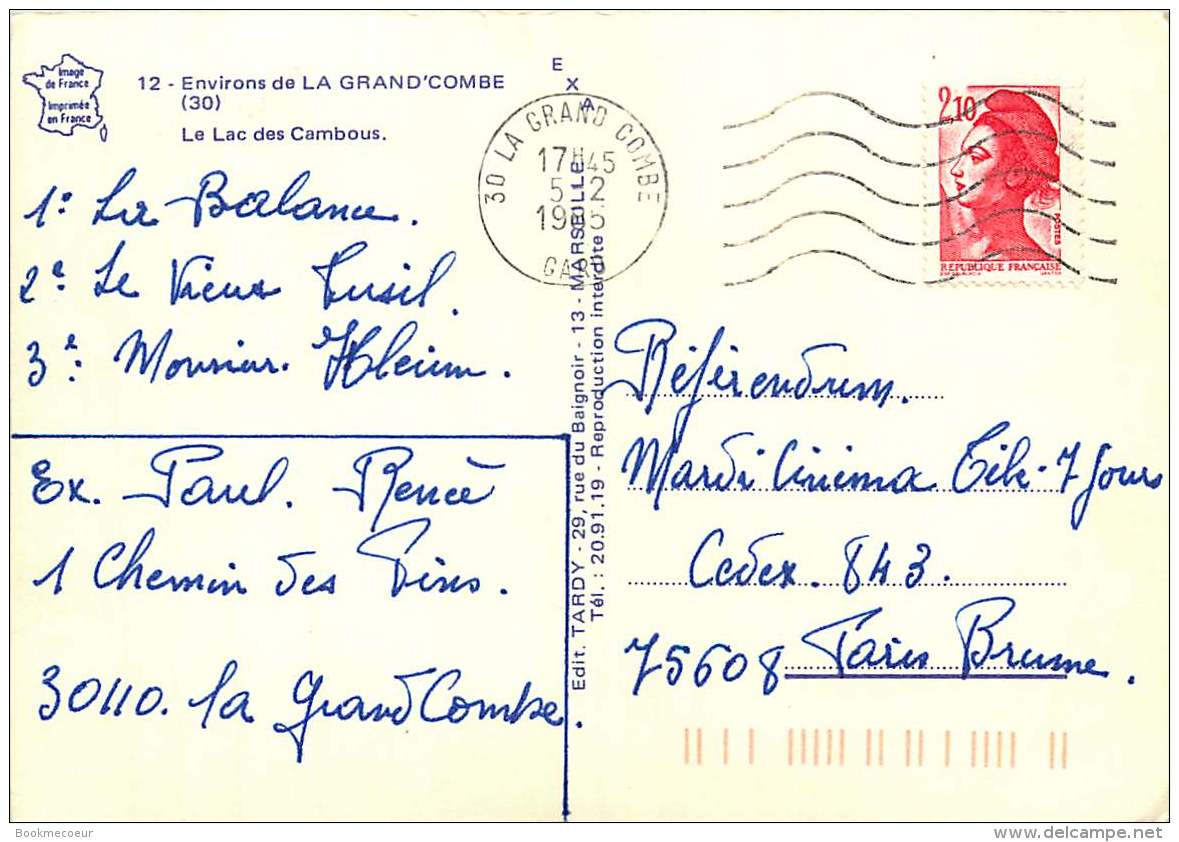 Image
de France
Imprimée
en France
12 - Environs de LA GRAND'COMBE
(30)
Le Lac des Cambous.
E
X
A
30 LA GRAND COMBE
17H45
5-12
1985
GARD
2,10
POSTES
REPUBLIQUE FRANÇAISE
1° La Balance.
2e. Le Vieux Fusil.
3e: Monsieur. Klein.
Ex. Paul. Renée
1 Chemin des Pins.
30110. la Grand Combe.
Edit. TARDY - 29, rue du Baignoir - 13 - MARSEILLE
Tél. : 20.91.19 - Reproduction interdite
Référendum.
Mardi Cinema Télé-7 Jours
Cedex. 843.
75608 Paris Brune.
Bookmecoeur
delcampe.net